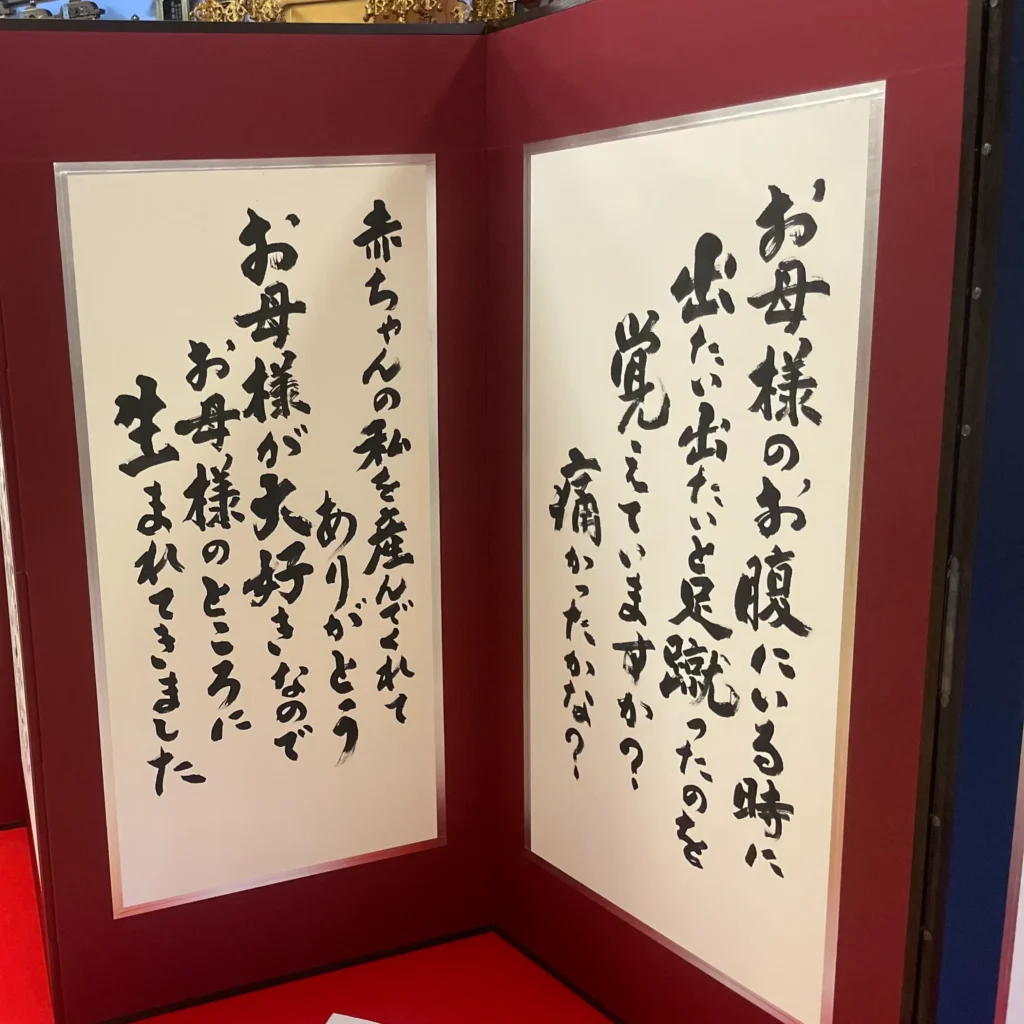 お母様のお腹にいる時に
出たい出たいと足蹴ったのを
覚えていますか?
痛かったかな?
赤ちゃんの私を産んでくれて
ありがとう
お母様が大好きなので
お母様のところに
生まれてきました